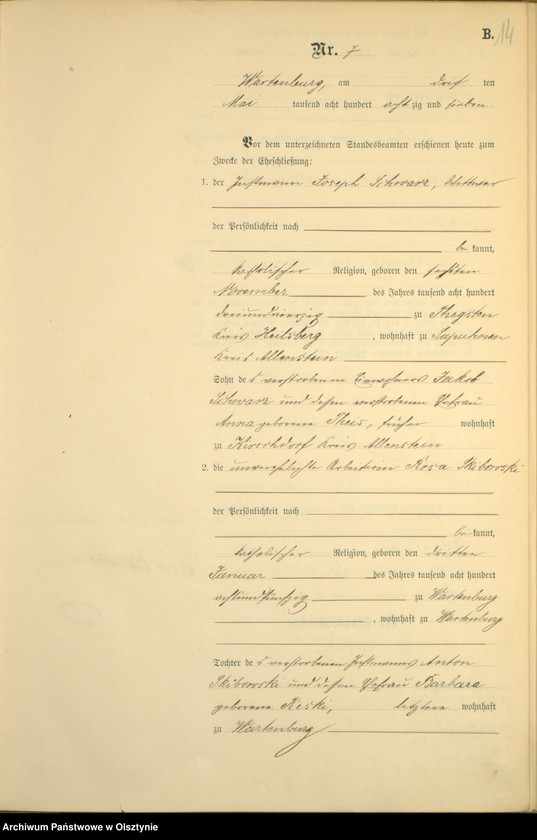 B. 14
Nr. 7
Wartenburg, am drit ten
Mai tausend acht hundert acht zig und sieben
Vor dem unterzeichneten Standesbeamten erschienen heute zum
Zwecke der Eheschließung:
1. der Instmann Joseph Schwarz, Wittwer
der Persönlichkeit nach
be kannt,
katholischer Religion, geboren den
November des Jahres tausend acht hundert
dreiundvierzig zu
Kreis Heilsberg, wohnhaft zu Lapuhnen
Kreis Allenstein
Sohn des verstorbenen Einwohners Jakob
Schwarz und dessen verstorbenen Ehefrau
Anna geborene Theis, früher wohnhaft
zu Kirschdorf Kreis Allenstein
2. die unverehelichte Arbeiterin Rosa Skibowski
der Persönlichkeit nach
be kannt,
katholischer Religion, geboren den dritten
Januar des Jahres tausend acht hundert
achtundfünfzig zu Wartenburg
, wohnhaft zu Wartenburg
Tochter des verstorbenen Instmanns Anton
Skibowski und dessen Ehefrau Barbara
geborene Reski, letztere wohnhaft
zu Wartenburg
Archiwum Państwowe w Olsztynie